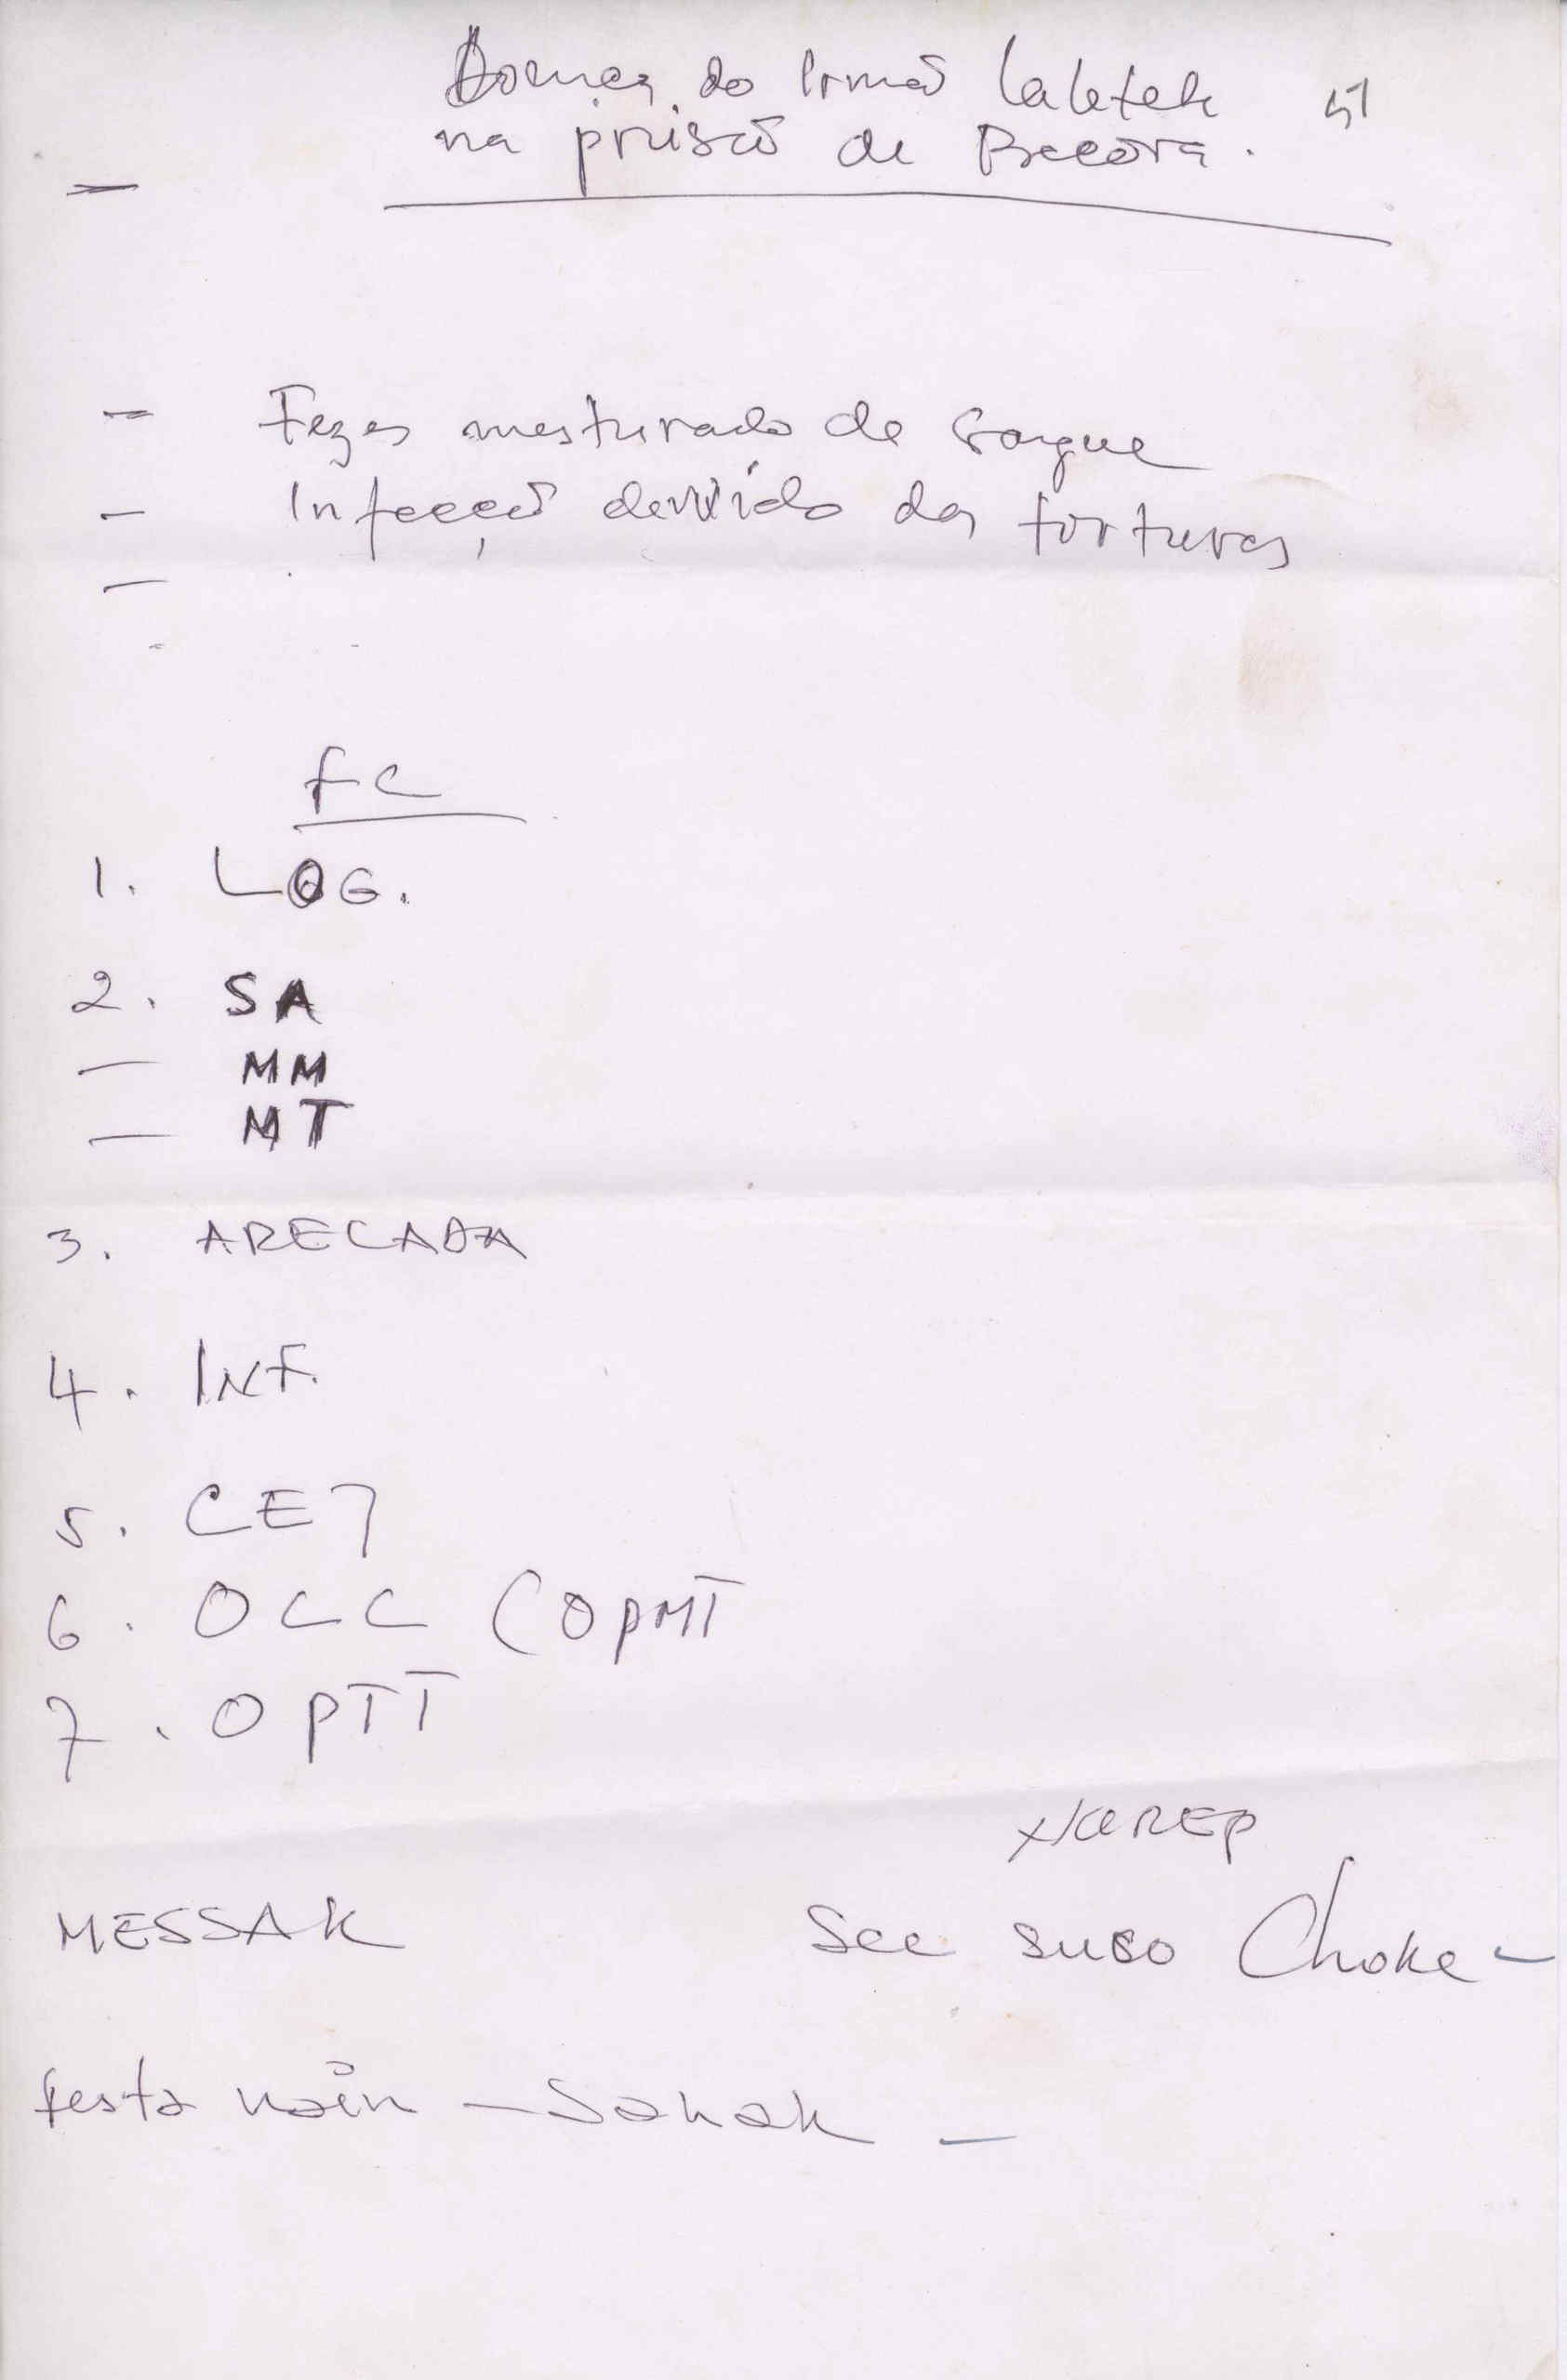 Doença do Irmão Laletek 51
na prisão de Becora.
— Fezes mesturado de sangue
— Infecção devido das torturas
—
FC
1. LOG.
2. SA
— MM
— MT
3. ARECADA
4. INF.
5. CE7
6. OCC (OPMT
7. OPTT
MESSAK See suco Choke —
festa nain — Sanak —